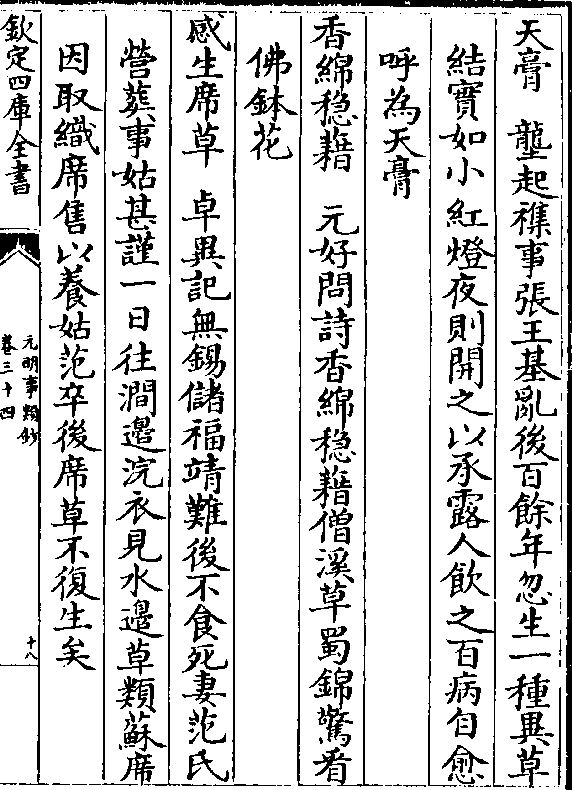 天膏　壟起襍事張王基亂後百餘年忽生一種異草
結實如小紅燈夜則開之以承露人飲之百病自愈
呼為天膏
香綿稳藉　元好問詩香綿稳藉僧溪草蜀錦驚看
佛鉢花
感生席草　卓異記無錫儲福靖難後不食死妻范氏
營葬事姑甚謹一日往澗邉浣衣見水邉草類蘇席
因取織席售以養姑范卒後席草不復生矣
欽定四庫全書
元明事類鈔
卷三十四
十八